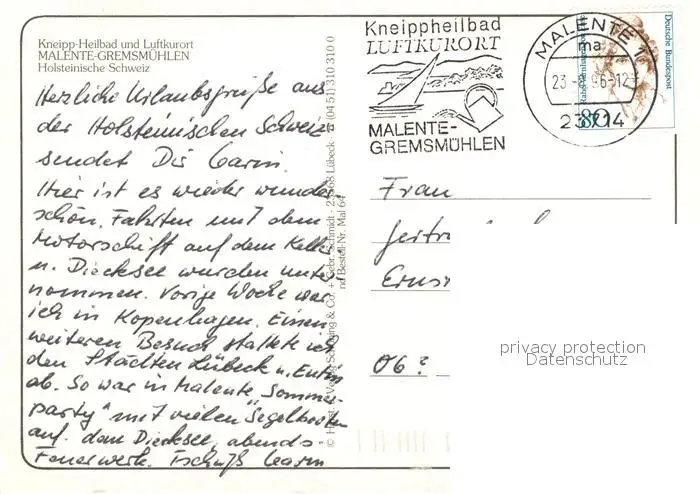 Kneipp-Heilbad und Luftkurort
MALENTE-GREMSMÜHLEN
Holsteinische Schweiz
Herzliche Urlaubsgrüße aus
der Holsteinischen Schweiz
sendet Dir Carin.
Hier ist es wieder wunder
schön. Fahrten mit dem
Motorschiff auf dem Keller
u. Dieksee wurden unter
nommen. Vorige Woche war
ich in Kopenhagen. Einen
weiteren Besuch stattete ich
den Städten Lübeck u. Eutin
ab. So war in Malente „Sommer-
party" mit vielen Segelbooten
auf dem Dieksee, abends-
Feuerwerk. Tschüß Carin
Schöning & Co. + Gebr. Schmidt · Lübeck · ☎ (04 51) 310 310 0
Bestell-Nr. Mal 64
Kneippheilbad
LUFTKURORT
MALENTE-
GREMSMÜHLEN
MALENTE 1
ma
23.-8.96-12
23714
Deutsche Bundespost
80
Frau
Ernst
06?
privacy protection
Datenschutz